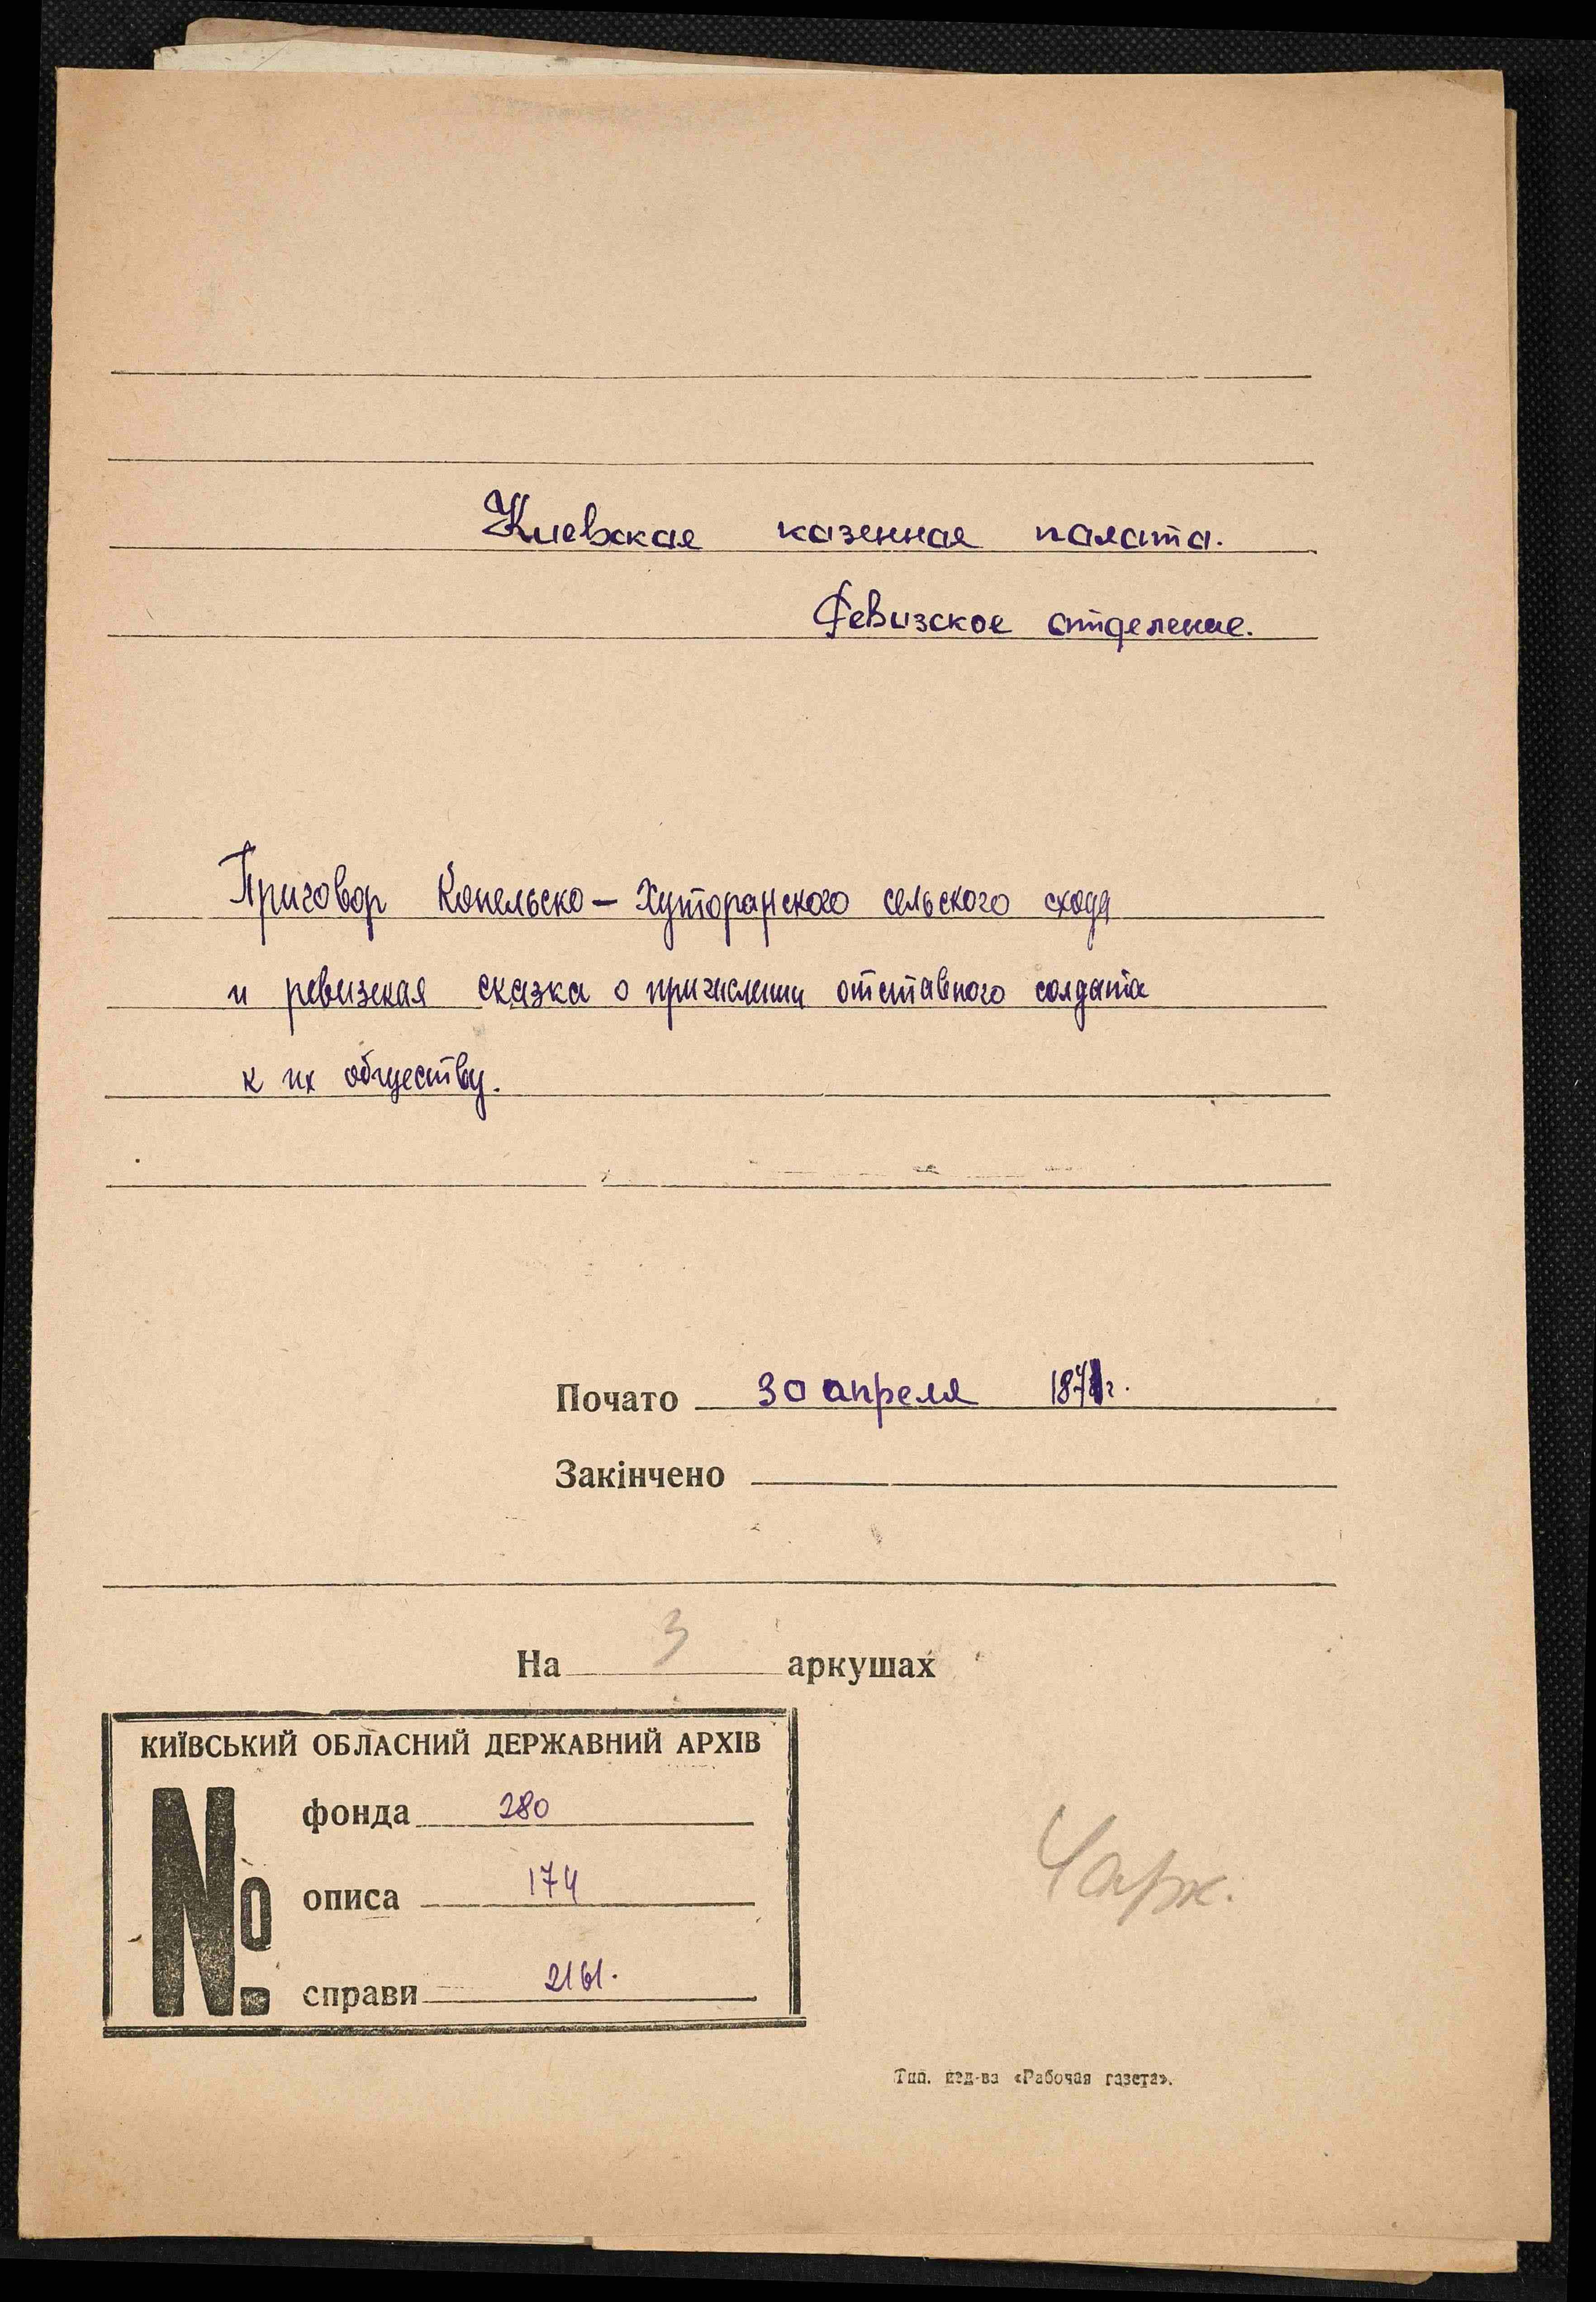 Киевская казенная палата.
Ревизское отделение.
Приговор Копельско – Хуторянского сельского схода
и ревизская сказка о причислении отставного солдата
к их обществу.
Почато 30 апреля 1871г.
Закінчено
На 3 аркушах
КИЇВСЬКИЙ ОБЛАСНИЙ ДЕРЖАВНИЙ АРХІВ
№ фонда 280
описа 174
справи 2161.
Тип. изд-ва «Рабочая газета».